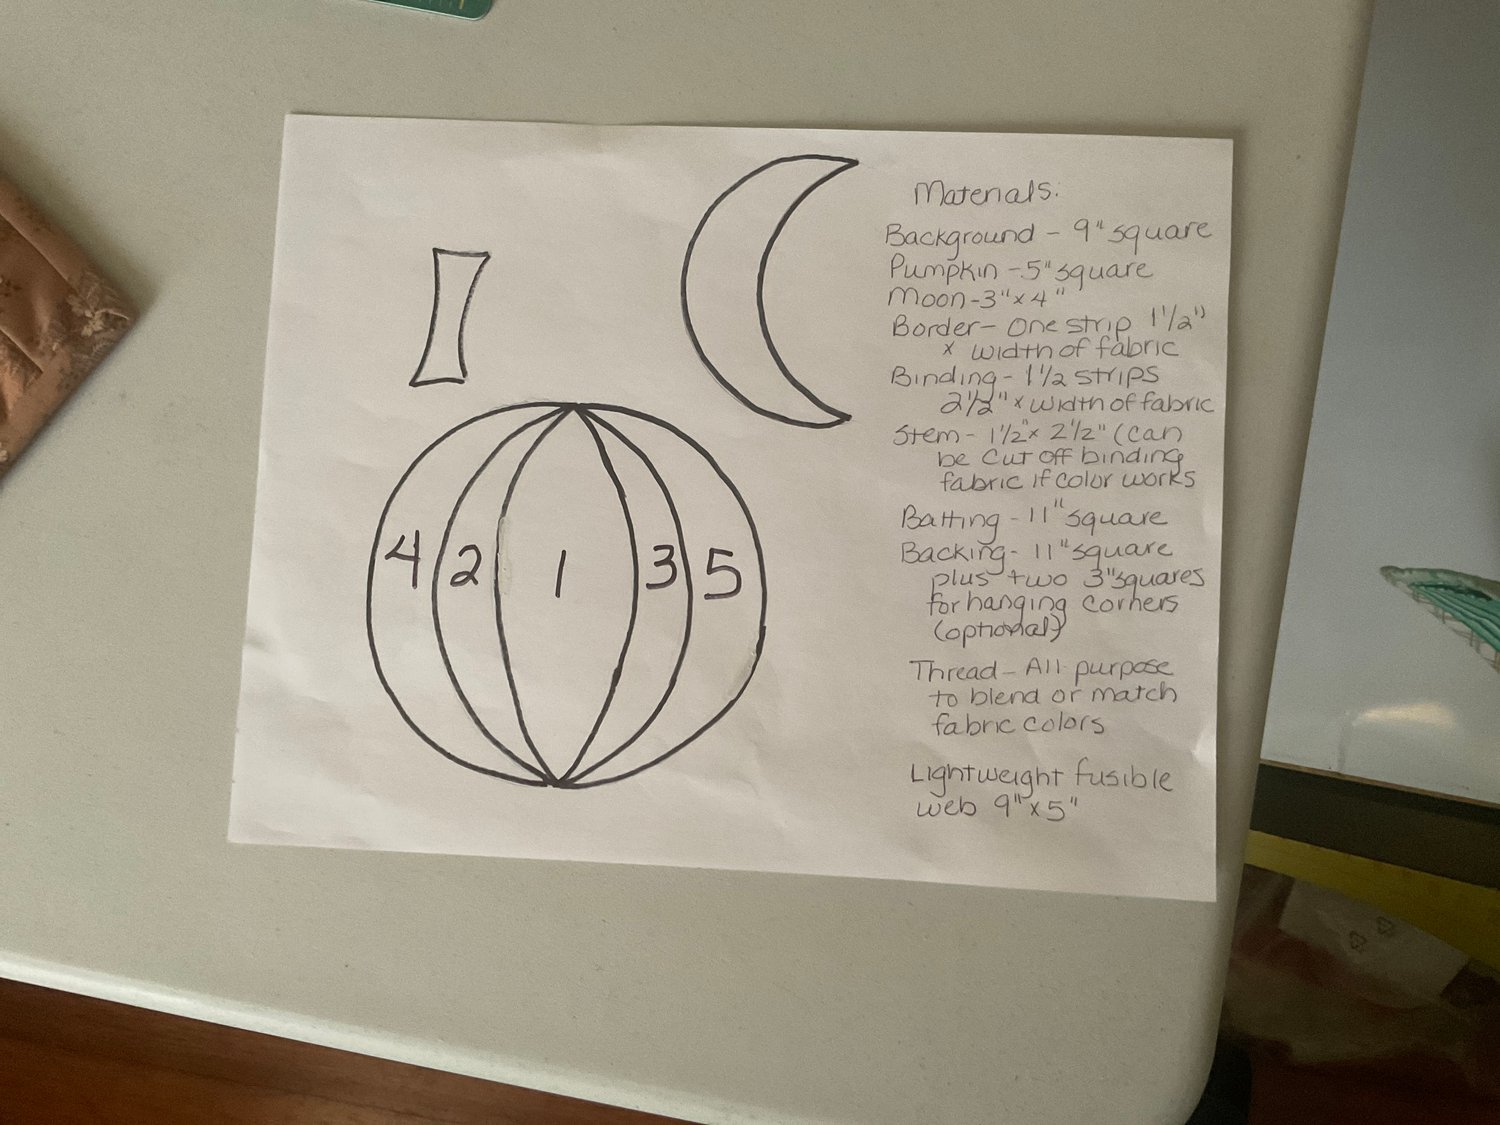 Materials:
Background - 9" square
Pumpkin - 5" square
Moon - 3" x 4"
Border - one strip 1 1/2"
x width of fabric
Binding - 1 1/2 strips
2 1/2" x width of fabric
Stem - 1 1/2" x 2 1/2" (can
be cut off binding
fabric if color works
Batting - 11" square
Backing - 11" square
plus two 3" squares
for hanging corners
(optional)
Thread - All purpose
to blend or match
fabric colors
Lightweight fusible
web 9" x 5"
4 2 1 3 5